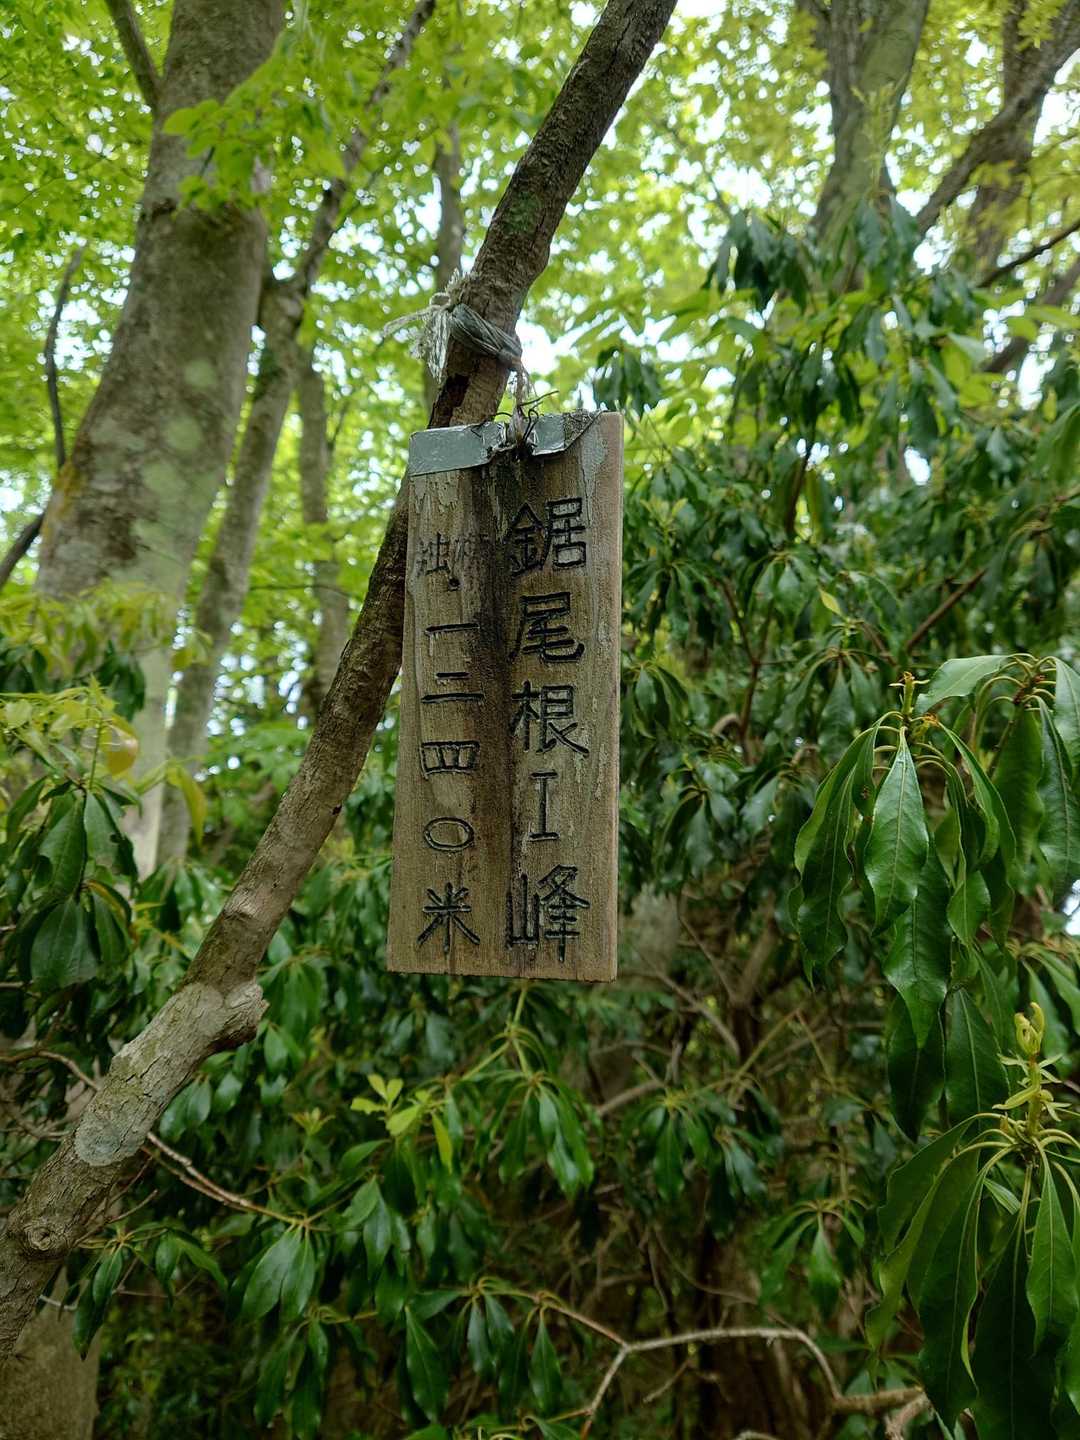 鋸尾根I峰
一二四〇米